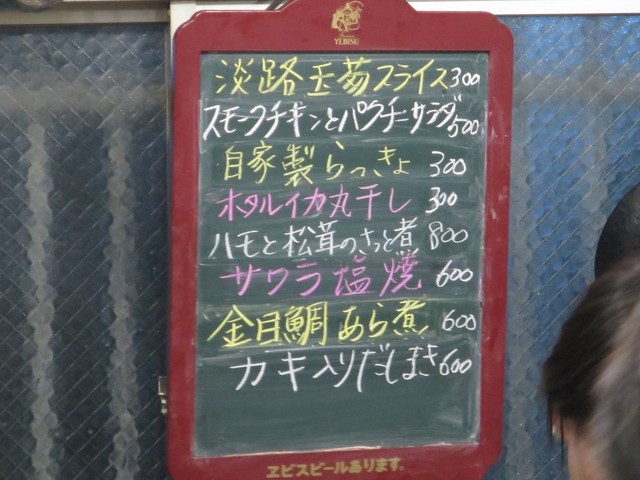 YEBISU
淡路玉葱スライス 300
スモークチキンとパクチーサラダ 500
自家製らっきょ 300
ホタルイカ丸干し 300
ハモと松茸のさっと煮 800
サワラ塩焼 600
金目鯛あら煮 600
カキ入りだしまき 600
ヱビスビールあります。